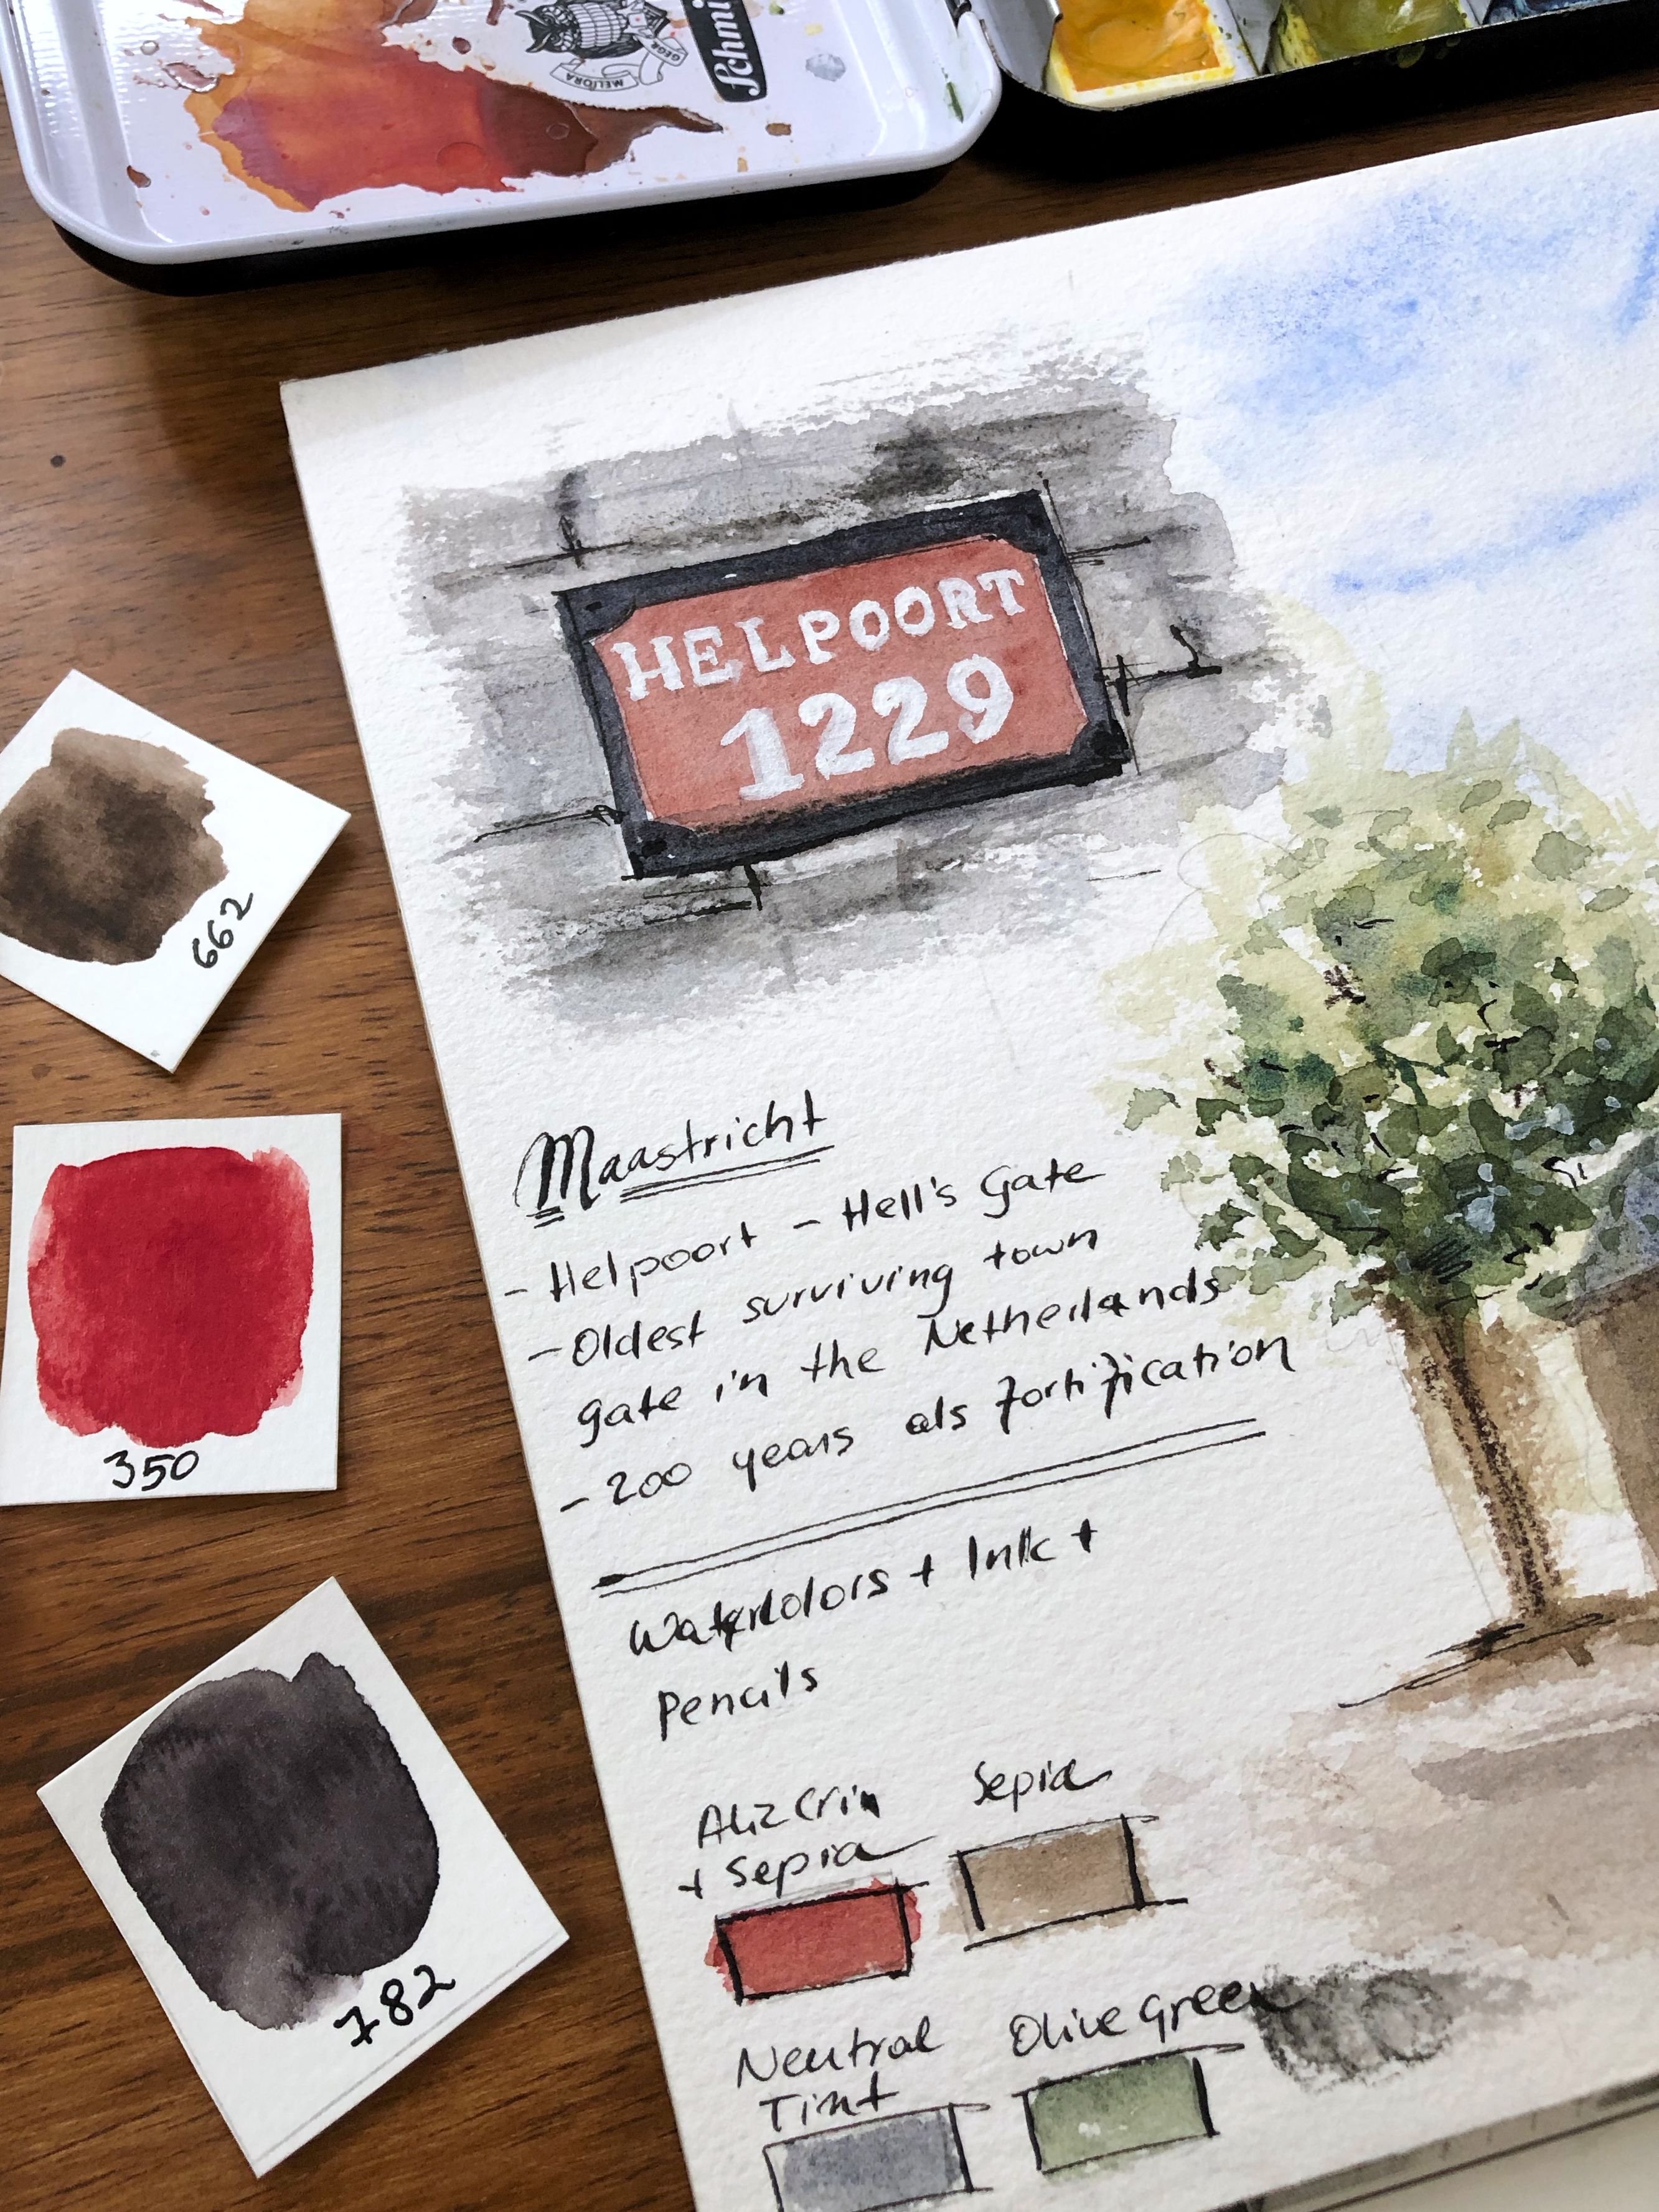 MELIORA
Schmi
HELPOORT
1229
662
350
782
Maastricht
- Helpoort - Hell's Gate
- Oldest surviving town
gate in the Netherlands
- 200 years als fortification
Watercolors + Ink +
Pencils
Aliz Crin
+ Sepia
Sepia
Neutral
Tint
Olive Green